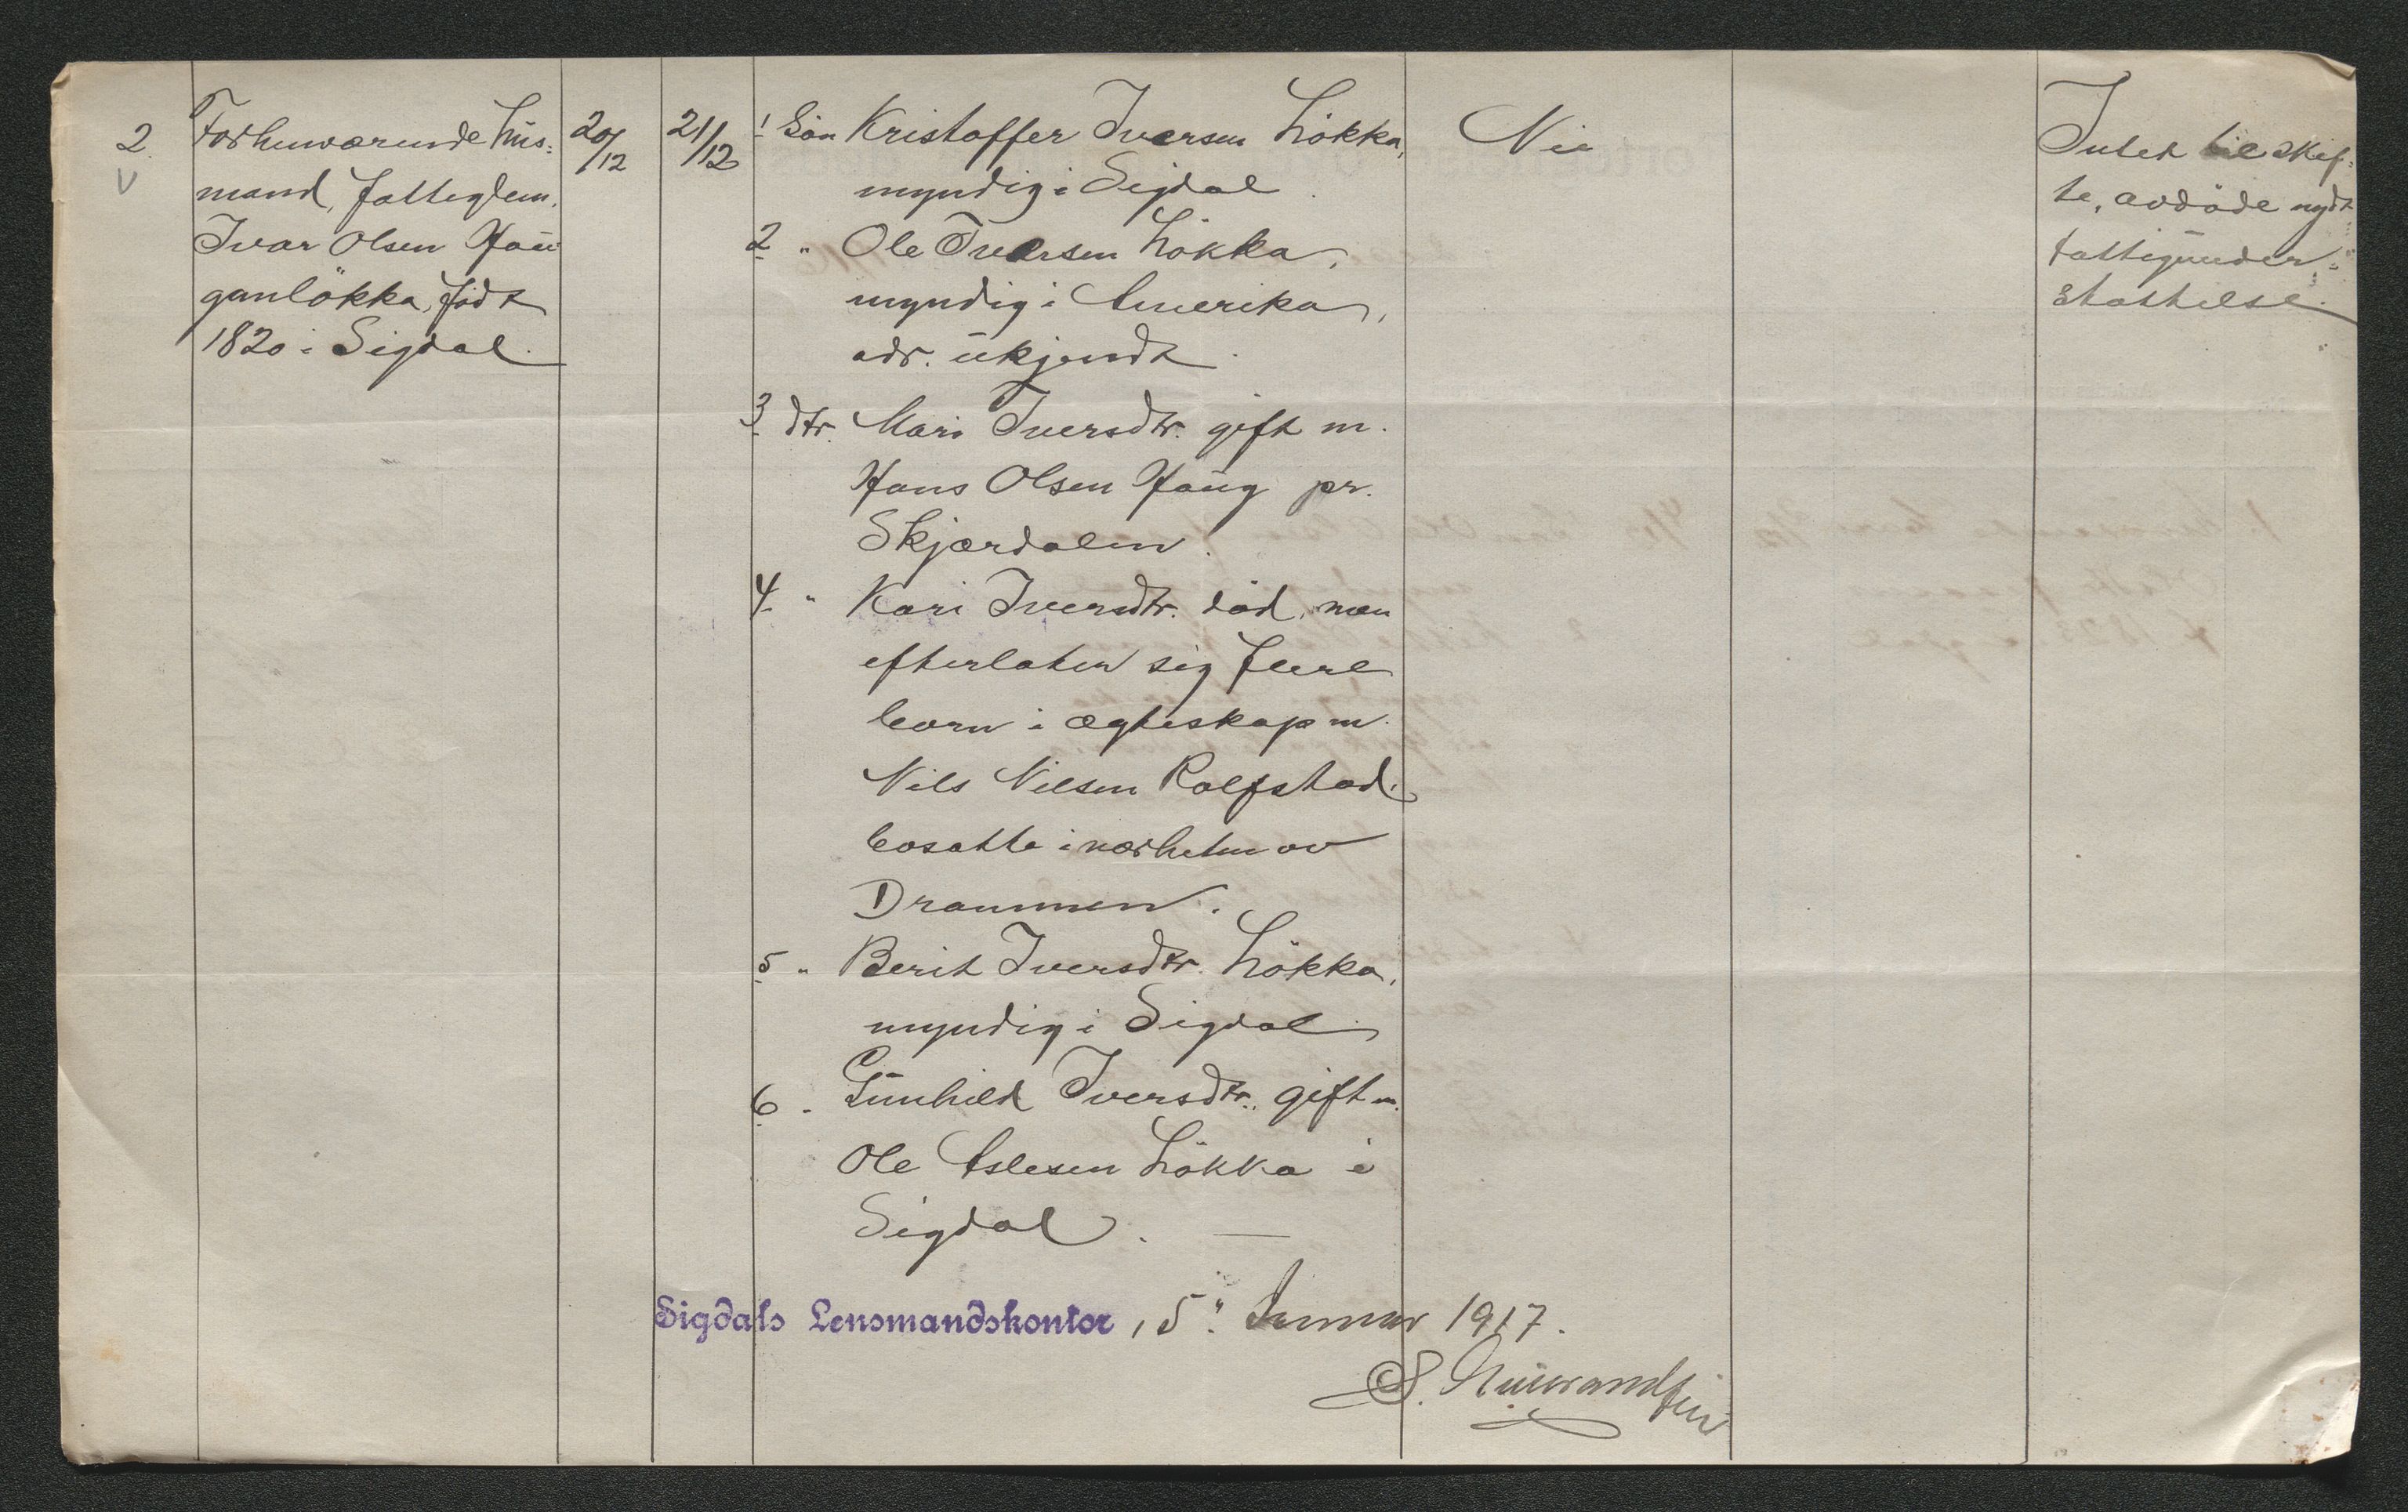 2.
Forhenværende hus-
mand, fattiglem.
Ivar Olsen Hau
ganløkka, født
1820 i Sigdal.
20/12
21/12
1 Søn Kristoffer Iversen Løkka,
myndig i Sigdal.
2 " Ole Iversen Løkka,
myndig i Amerika,
adr. ukjendt.
3 dtr. Mari Iversdtr. gift m.
Hans Olsen Haug pr.
Skjærdalen.
4 " Kari Iversdtr. død, men
efterlater sig flere
barn i ægteskap m.
Nils Nilsen Rolfstad.
bosatte i nærheten av
Drammen.
5 " Berit Iversdtr. Løkka,
myndig i Sigdal
6 " Gunhild Iversdtr., gift m.
Ole Aslesen Løkka i
Sigdal.
Nei
Intet til skif-
te, avdøde nydt
fattigunder-
støttelse.
Sigdals Lensmandskontor, 5. Januar 1917.